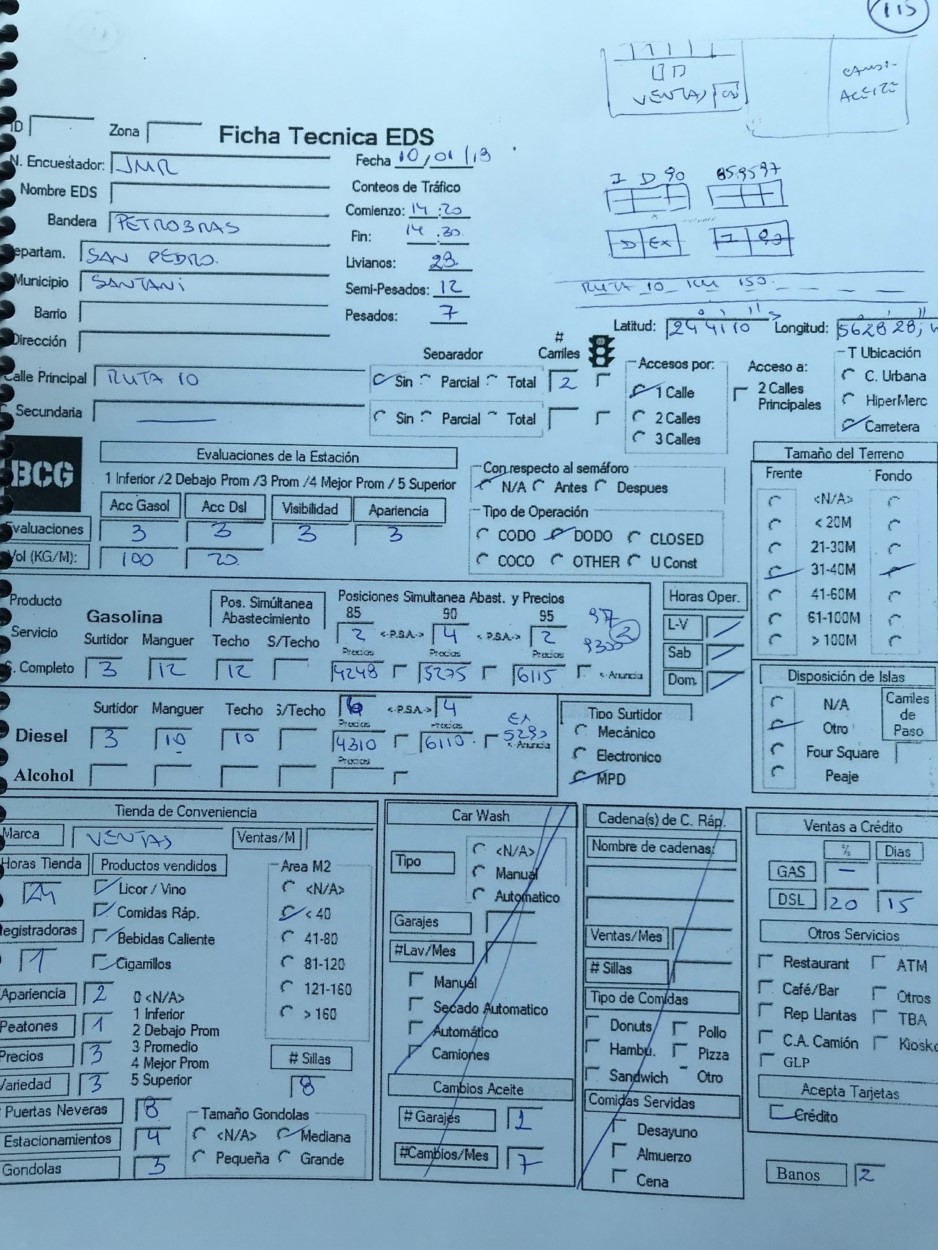 115
VENTAS
ACEITE
ID Zona Ficha Tecnica EDS
N. Encuestador: JMR Fecha 10/01/13
Nombre EDS Conteos de Tráfico
Bandera PETROBRAS Comienzo: 14:20
Fin: 14:30
Departam. SAN PEDRO. Livianos: 23
Municipio SANTANI Semi-Pesados: 12
Barrio Pesados: 7
Dirección
I D 90 85 95 97
D EX
RUTA 10 KM 150
Latitud: 24 41 10 Longitud: 56 28 28
Separador # Carriles
Calle Principal RUTA 10 Sin Parcial Total 2
Secundaria Sin Parcial Total
Accesos por:
1 Calle
2 Calles
3 Calles
Acceso a:
2 Calles
Principales
T Ubicación
C. Urbana
HiperMerc
Carretera
BCG
Evaluaciones de la Estación
1 Inferior /2 Debajo Prom /3 Prom /4 Mejor Prom / 5 Superior
Acc Gasol Acc Dsl Visibilidad Apariencia
Evaluaciones 3 3 3 3
Vol (KG/M): 100 20
Con respecto al semáforo
N/A Antes Despues
Tipo de Operación
CODO DODO CLOSED
COCO OTHER U Const
Tamaño del Terreno
Frente Fondo
<N/A>
< 20M
21-30M
31-40M
41-60M
61-100M
> 100M
Producto
Servicio
Gasolina
Pos. Simúltanea
Abastecimiento
Posiciones Simultanea Abast. y Precios
85 90 95
2 <-P.S.A.-> 4 <-P.S.A.-> 2
Surtidor Manguer Techo S/Techo Precios Precios Precios
S. Completo 3 12 12 4248 5275 6115 <-Anuncia
97
9300 2
Horas Oper.
L-V
Sab
Dom.
Surtidor Manguer Techo S/Techo 6 <-P.S.A.-> 4
Precios Precios
Diesel 3 10 10 4310 6110 <-Anuncia
EX
Precios
Alcohol
Tipo Surtidor
Mecánico
Electronico
MPD
Disposición de Islas
N/A
Otro
Four Square
Peaje
Carriles
de
Paso
Tienda de Conveniencia
Marca VENTAS Ventas/M
Horas Tienda 24
Productos vendidos
Licor / Vino
Comidas Ráp.
Bebidas Caliente
Cigarrillos
Registradoras 1
Area M2
<N/A>
< 40
41-80
81-120
121-160
> 160
Apariencia 2
Peatones 1
Precios 3
Variedad 3
0 <N/A>
1 Inferior
2 Debajo Prom
3 Promedio
4 Mejor Prom
5 Superior
# Sillas
8
# Puertas Neveras 8
Estacionamientos 4
Gondolas 3
Tamaño Gondolas
<N/A> Mediana
Pequeña Grande
Car Wash
Tipo
<N/A>
Manual
Automatico
Garajes
#Lav/Mes
Manual
Secado Automatico
Automático
Camiones
Cambios Aceite
# Garajes 1
#Cambios/Mes 7
Cadena(s) de C. Ráp.
Nombre de cadenas:
Ventas/Mes
# Sillas
Tipo de Comidas
Donuts Pollo
Hambu. Pizza
Sandwich Otro
Comidas Servidas
Desayuno
Almuerzo
Cena
Ventas a Crédito
% Dias
GAS –
DSL 20 15
Otros Servicios
Restaurant ATM
Café/Bar Otros
Rep Llantas TBA
C.A. Camión Kiosko
GLP
Acepta Tarjetas
Crédito
Banos 2